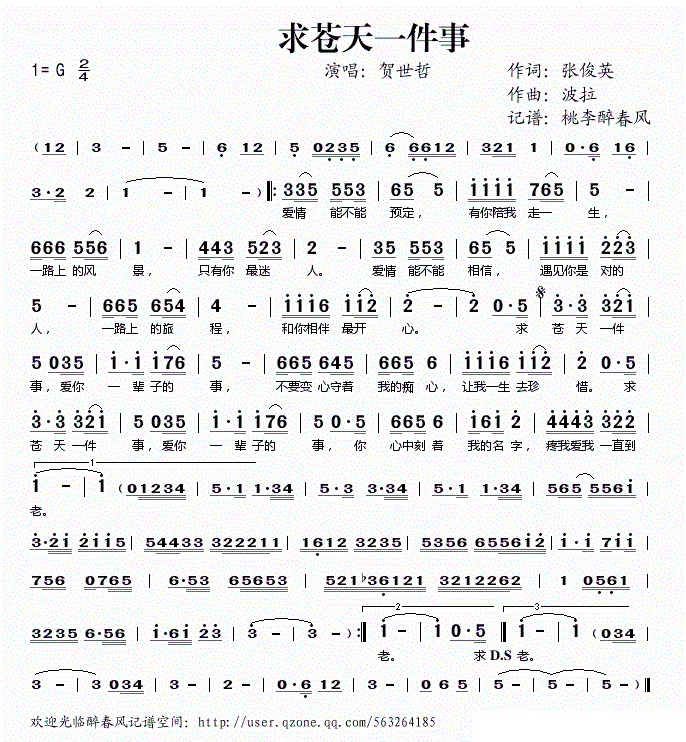 求苍天一件事
1= G 2/4 演唱：贺世哲 作词：张俊英
作曲：波拉
记谱：桃李醉春风
( 12 | 3 - | 5 - | 6 12 | 5 0235 | 6 6612 | 321 1 | 0·6 16 |
3·2 2 | 1 - | 1 - ) ‖: 335 553 | 65 5 | 1111 765 | 5 - |
爱情 能不能 预定， 有你陪我 走一 生，
666 556 | 1 - | 443 523 | 2 - | 35 553 | 65 5 | 1111 223 |
一路上 的风 景， 只有你 最迷 人。 爱情 能不能 相信， 遇见你是 对的
5 - | 665 654 | 4 - | 1116 112 | 2 - | 2 0·5 | 3·3 321 |
人， 一路上 的旅 程， 和你相伴 最开 心。 求 苍 天 一件
5 035 | 1·1 176 | 5 - | 665 645 | 665 6 | 1116 112 | 2 0·5 |
事，爱你 一 辈 子的 事， 不要变 心守着 我的痴 心，让我一生 去珍 惜。 求
3·3 321 | 5 035 | 1·1 176 | 5 0·5 | 665 6 | 161 2 | 4443 322 |
苍 天 一件 事，爱你 一 辈 子的 事， 你 心中刻 着 我的名 字，疼我爱我 一直到
1
1 - | 1 (01234 | 5·1 1·34 | 5·3 3·34 | 5·1 1·34 | 565 5561 |
老。
3·21 2115 | 54433 322211 | 1612 3235 | 5356 655612 | 1·1 711 |
756 0765 | 6·53 65653 | 521♭36121 3212262 | 1 0561 |
3235 6·56 | 1·61 23 | 3 - | 3 - ) :‖ 2 1 - | 1 0·5 ‖ 3 1 - | 1 (034 |
老。 求 D.S 老。
3 - | 3 034 | 3 - | 3 - | 2 - | 0·6 12 | 3 - | 5 - | 5 - | 5 - ‖
欢迎光临醉春风记谱空间：http://user.qzone.qq.com/563264185